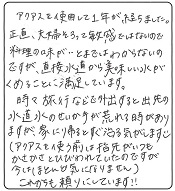 アクアスで使用して1年が、たちました。
正直、夫婦そろって敏感ではないので
料理の味が…とまではわからないの
ですが、直接水道から美味しい水が
くめることに満足しています。
時々旅行などで外出すると出先の
水道水のせいか手が荒れる時があり
ますが、家に帰るとすぐ治る気がします☺
(アクアスで使う前は指先がいつも
かさかさとひびわれていたのですが
今はほとんど気になりません)
これからも頼りにしています!!